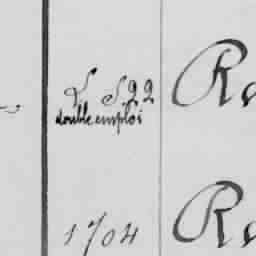 L S.22
double emploi
Ra
1704
Ra